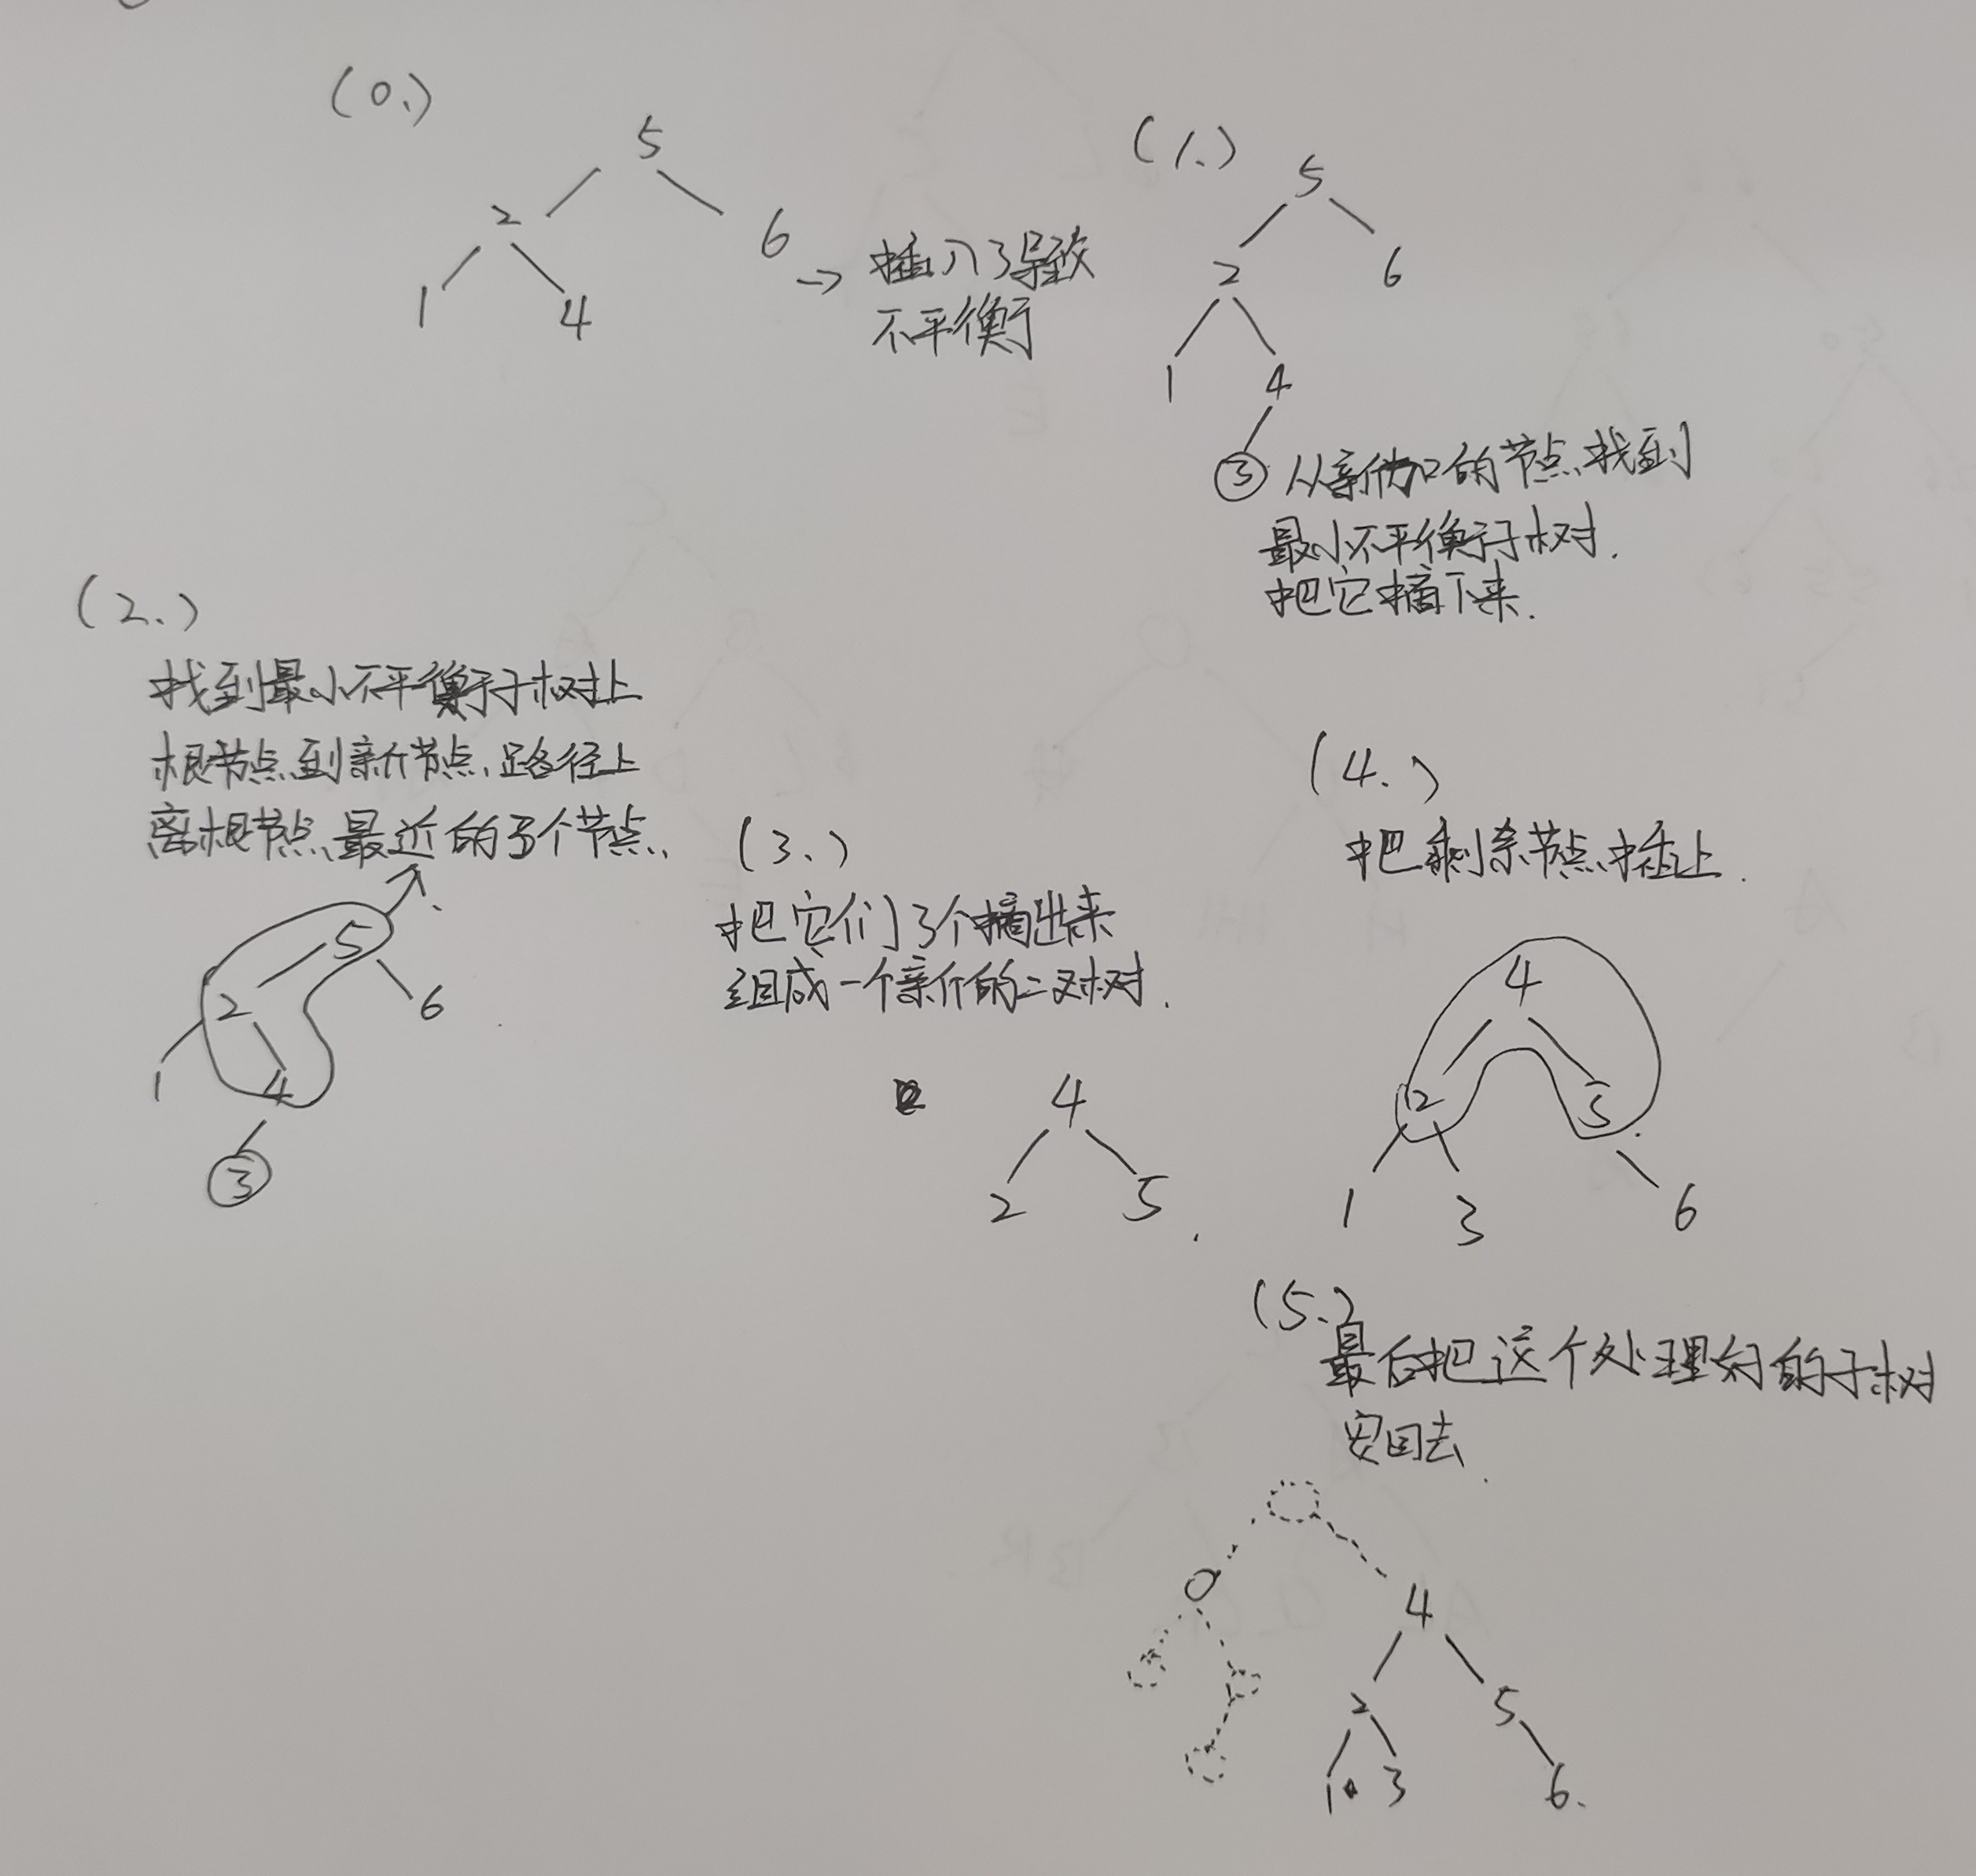 (0.)
5
2
6
1
4
→ 插入3导致
不平衡
(1.)
5
2
6
1
4
③ 从新加的节点找到
最小不平衡子树.
把它摘下来.
(2.)
找到最小不平衡子树上
根节点到新节点路径上
离根节点最近的3个节点.
5
2
6
1
4
③
(3.)
把它们3个摘出来
组成一个新的二叉树.
4
2
5
(4.)
把剩余节点插上.
4
2
5
1
3
6
(5.)
最后把这个处理好的子树
安回去.
4
2
5
1
3
6.